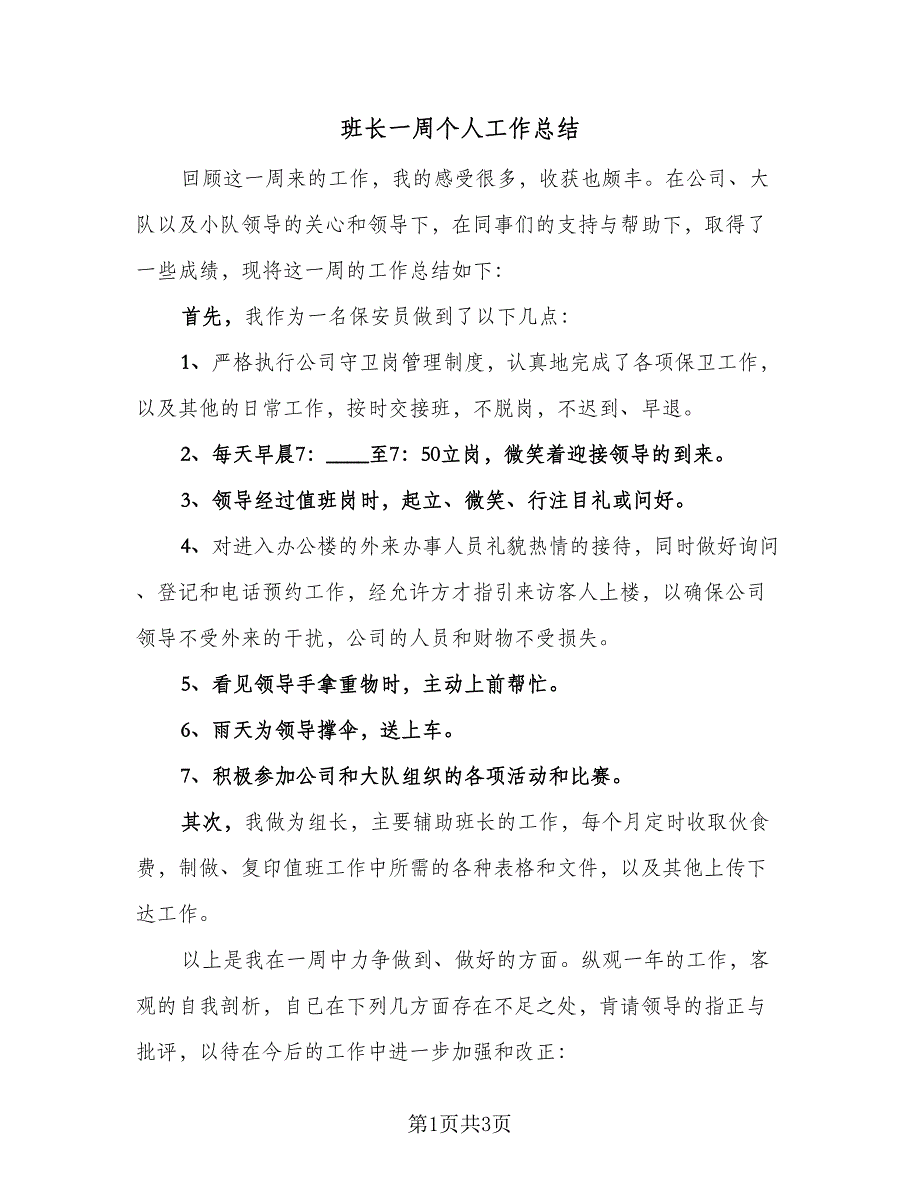 班长一周个人工作总结
回顾这一周来的工作，我的感受很多，收获也颇丰。在公司、大
队以及小队领导的关心和领导下，在同事们的支持与帮助下，取得了
一些成绩，现将这一周的工作总结如下：
首先，我作为一名保安员做到了以下几点：
1、严格执行公司守卫岗管理制度，认真地完成了各项保卫工作，
以及其他的日常工作，按时交接班，不脱岗，不迟到、早退。
2、每天早晨7：____至7：50立岗，微笑着迎接领导的到来。
3、领导经过值班岗时，起立、微笑、行注目礼或问好。
4、对进入办公楼的外来办事人员礼貌热情的接待，同时做好询问
、登记和电话预约工作，经允许方才指引来访客人上楼，以确保公司
领导不受外来的干扰，公司的人员和财物不受损失。
5、看见领导手拿重物时，主动上前帮忙。
6、雨天为领导撑伞，送上车。
7、积极参加公司和大队组织的各项活动和比赛。
其次，我做为组长，主要辅助班长的工作，每个月定时收取伙食
费，制做、复印值班工作中所需的各种表格和文件，以及其他上传下
达工作。
以上是我在一周中力争做到、做好的方面。纵观一年的工作，客
观的自我剖析，自已在下列几方面存在不足之处，肯请领导的指正与
批评，以待在今后的工作中进一步加强和改正：
第1页共3页